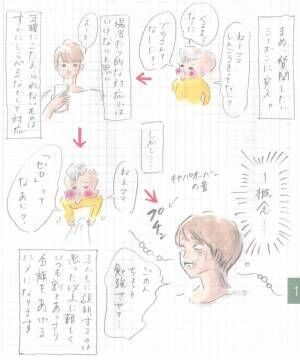 まめ、質問したい
シーズンに突入。
ねーママ
しんこうきってなに?
くうきって
なーに?
ゾウさんって
なーに?
場当たり的な対応では
いけないと思い
スッ
正確にこたえられないものは
すぐにしらべるなどして対応
しかし…
ねぇママ
「ゼロ」って
なぁに?
1概念…
キャパオーバーの音
プチン
ごめん
ちょっと
勉強させて…
子どもに説明するのは
思った以上に難しく
いつも割とあっさり
白旗をあげる
ハメになります
1